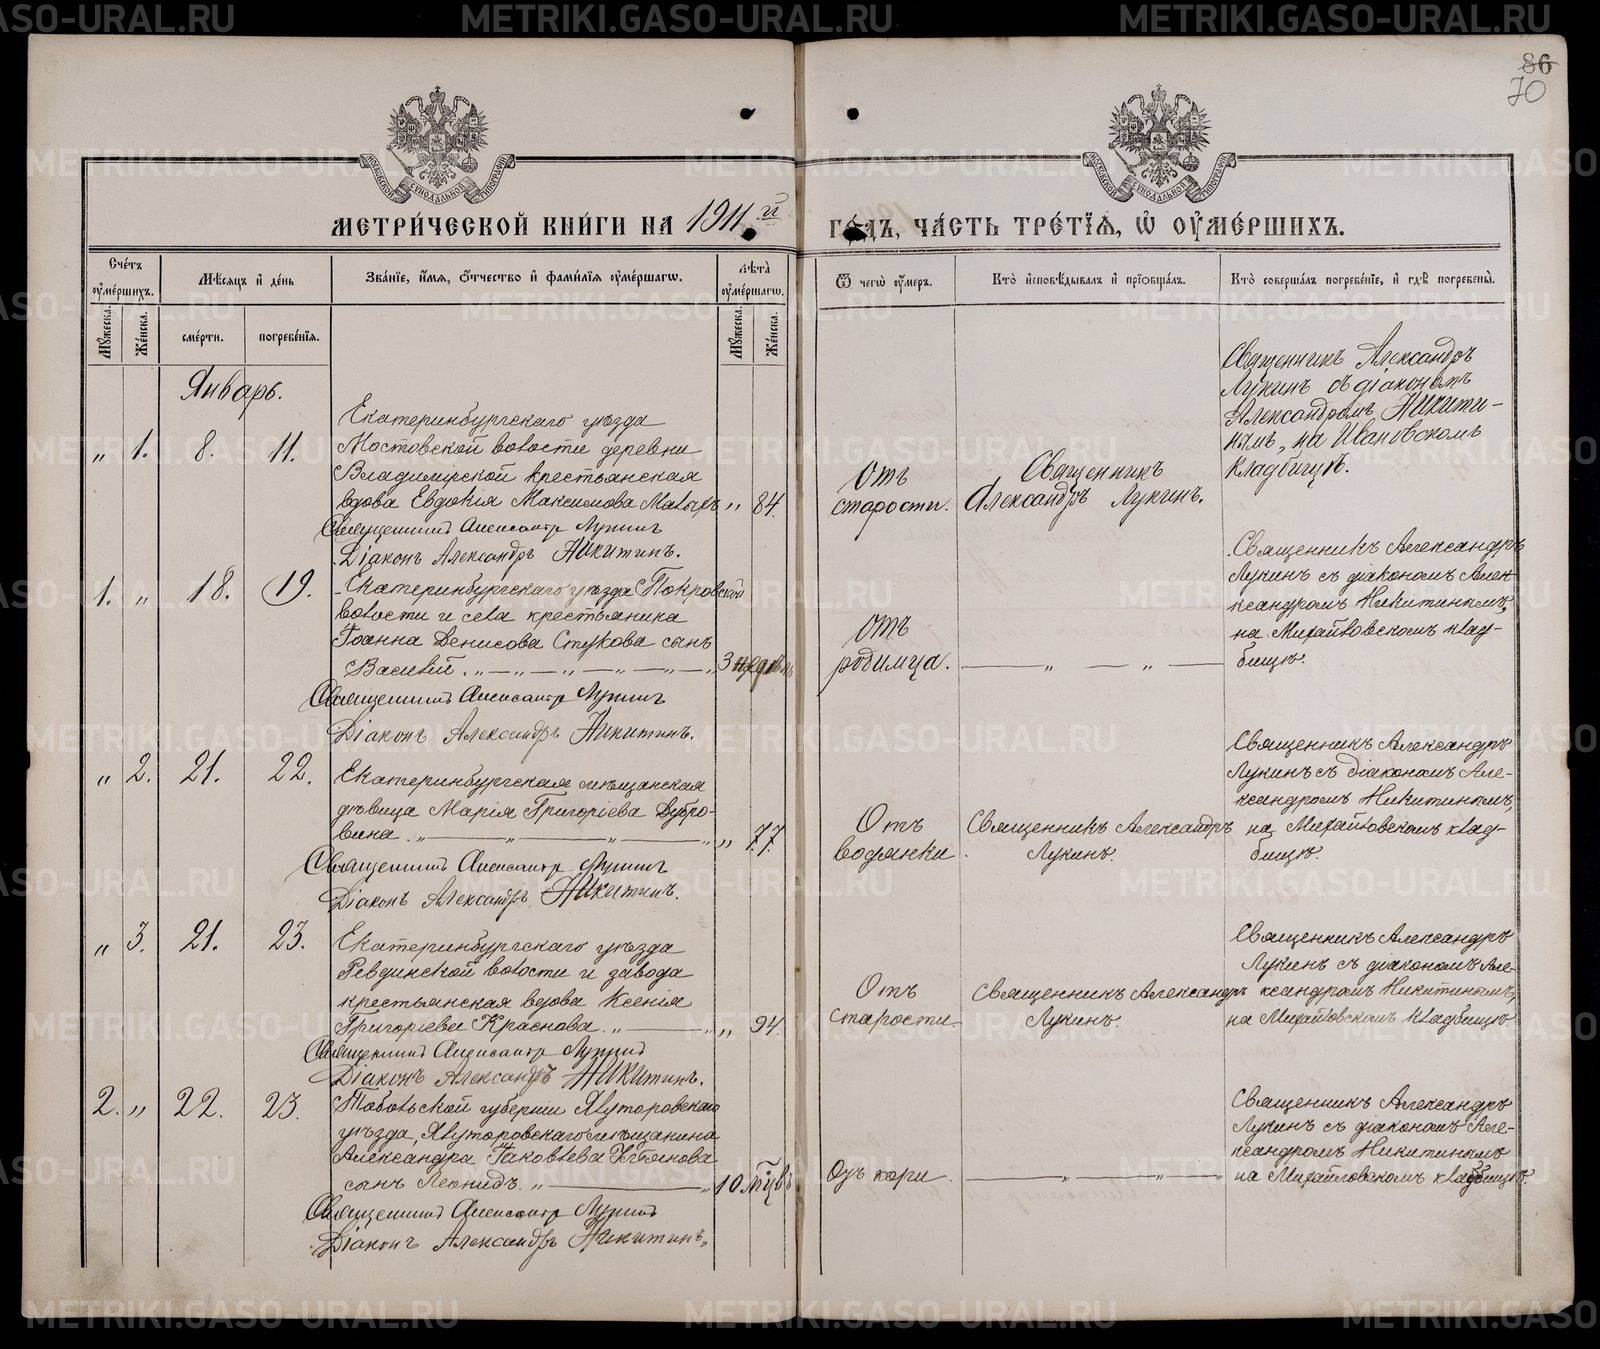 86
70
МЕТРИ́ЧЕСКОЙ КНИ́ГИ НА 1911й ГО́ДЪ, ЧА́СТЬ ТРЕ́ТІѦ, Ѡ҆ ОУ҆МЕ́РШИХЪ.
Сче́тъ оу҆ме́ршихъ.
Мꙋ́жеска.
Же́нска.
Мѣ́сѧцъ и҆ де́нь
сме́рти.
погребе́нїѧ.
Зва́нїе, и҆́мѧ, ѻ҆́тчество и҆ фами́лїѧ оу҆ме́ршагѡ.
Лѣ́та оу҆ме́ршагѡ.
Мꙋ́жеска.
Же́нска.
Ѿ чегѡ̀ оу҆́меръ.
Кто̀ и҆сповѣ́дывалъ и҆ прїѡбща́лъ.
Кто̀ соверша́лъ погребе́нїе, и҆ гдѣ̀ погребены̀.
Январь.
„ 1. 8. 11.
Екатеринбургскаго уѣзда
Мостовской волости деревни
Владимірской крестьянская
вдова Евдокія Максимова Малыхъ „ 84.
Священникъ Александръ Лукинъ
Діаконъ Александръ Никитинъ.
Отъ
старости.
Священникъ
Александръ Лукинъ.
Священникъ Александръ
Лукинъ съ діакономъ
Александромъ Никити-
нымъ, на Ивановскомъ
кладбищѣ.
1. „ 18. 19.
Екатеринбургскаго уѣзда Покровской
волости и села крестьянина
Іоанна Денисова Стукова сынъ
Василій. „ — „ — „ — „ — „ — „ 3 недѣль
Священникъ Александръ Лукинъ
Діаконъ Александръ Никитинъ.
Отъ
родимца.
— „ — „ —
Священникъ Александръ
Лукинъ съ діакономъ Алек-
ксандромъ Никитинымъ,
на Михайловскомъ клад-
бищѣ.
„ 2. 21. 22.
Екатеринбургская мѣщанская
дѣвица Марія Григоріева Дубро-
вина. „ — „ — „ — „ „ 77.
Священникъ Александръ Лукинъ
Діаконъ Александръ Никитинъ.
Отъ
водянки.
Священникъ Александръ
Лукинъ.
Священникъ Александръ
Лукинъ съ діакономъ Але-
ксандромъ Никитинымъ,
на Михайловскомъ клад-
бищѣ.
„ 3. 21. 23.
Екатеринбургскаго уѣзда
Ревдинской волости и завода
крестьянская вдова Ксенія
Григоріева Краснова. „ — „ „ 94.
Священникъ Александръ Лукинъ
Діаконъ Александръ Никитинъ.
Отъ
старости.
Священникъ Александръ
Лукинъ.
Священникъ Александръ
Лукинъ съ діакономъ Але-
ксандромъ Никитинымъ,
на Михайловскомъ кладбищѣ.
2. „ 22. 23.
Тобольской губерніи Ялуторовскаго
уѣзда, Ялуторовскаго мѣщанина
Александра Іаковлева
сынъ Леонидъ. „ — „ 10
Священникъ Александръ Лукинъ
Діаконъ Александръ Никитинъ.
Отъ кори.
— „ — „ —
Священникъ Александръ
Лукинъ съ діакономъ Але-
ксандромъ Никитинымъ
на Михайловскомъ кладбищѣ.
METRIKI.GASO-URAL.RU